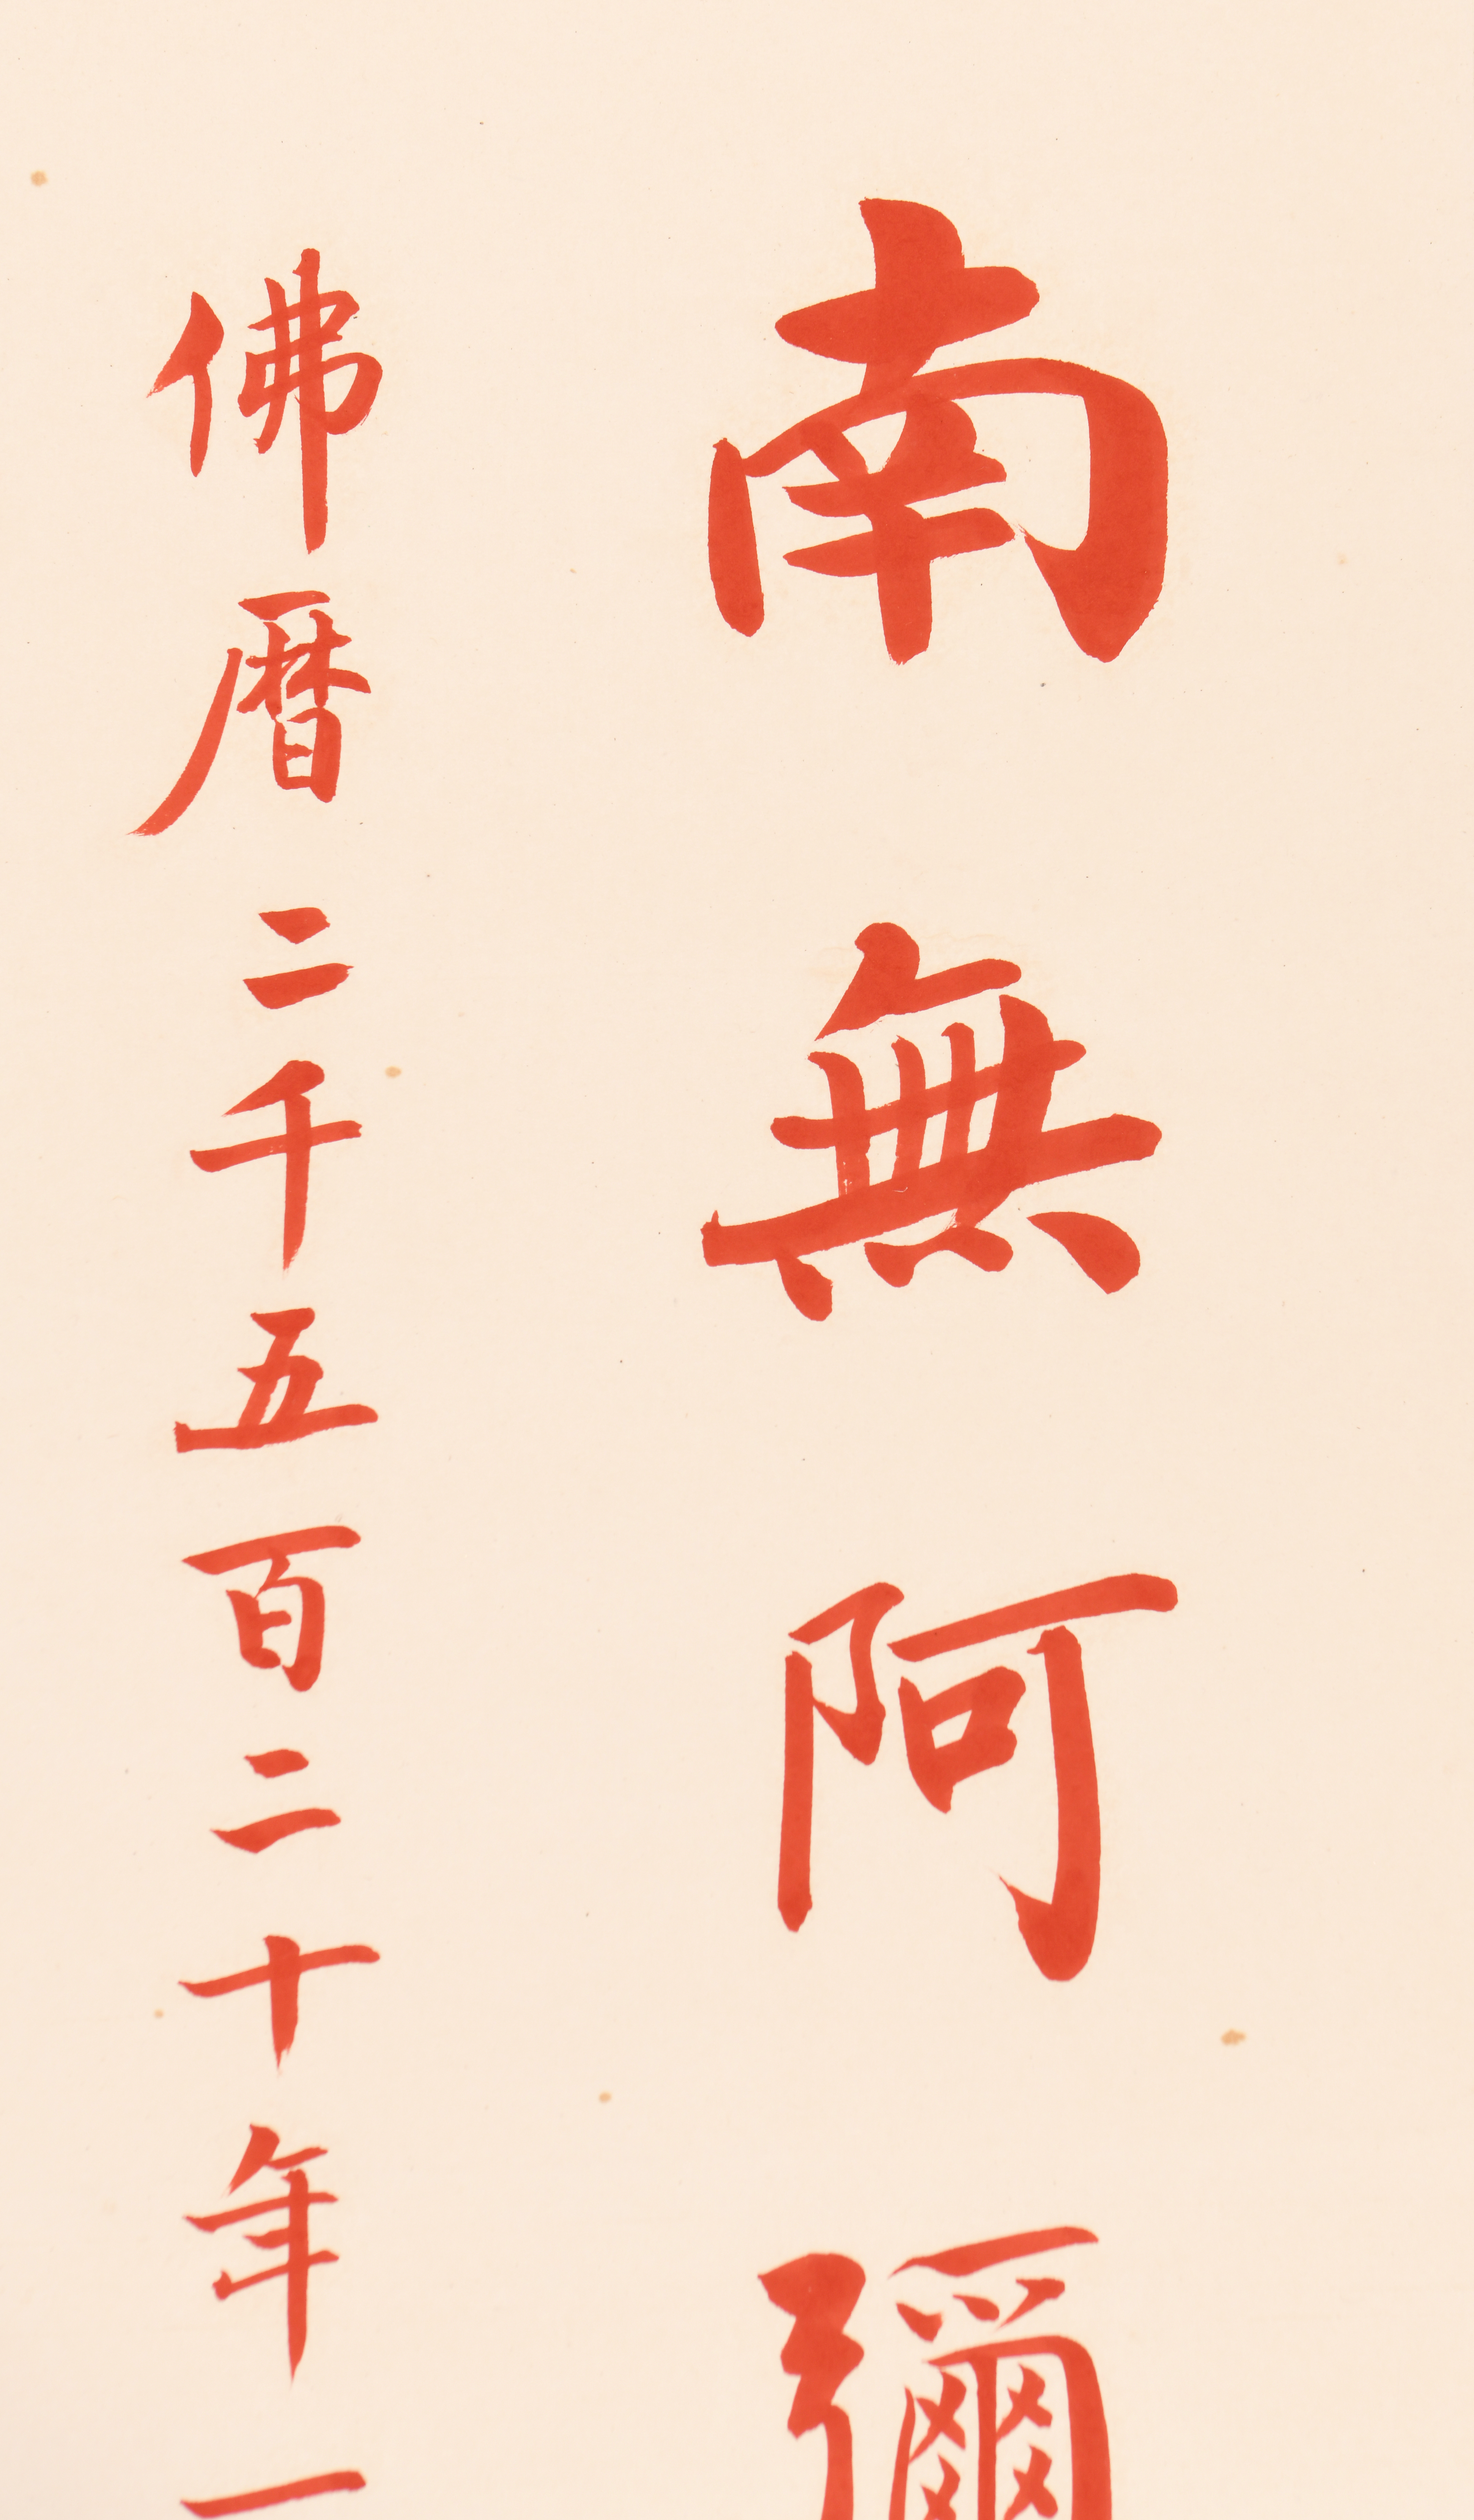 南無阿彌
佛曆二千五百二十年一